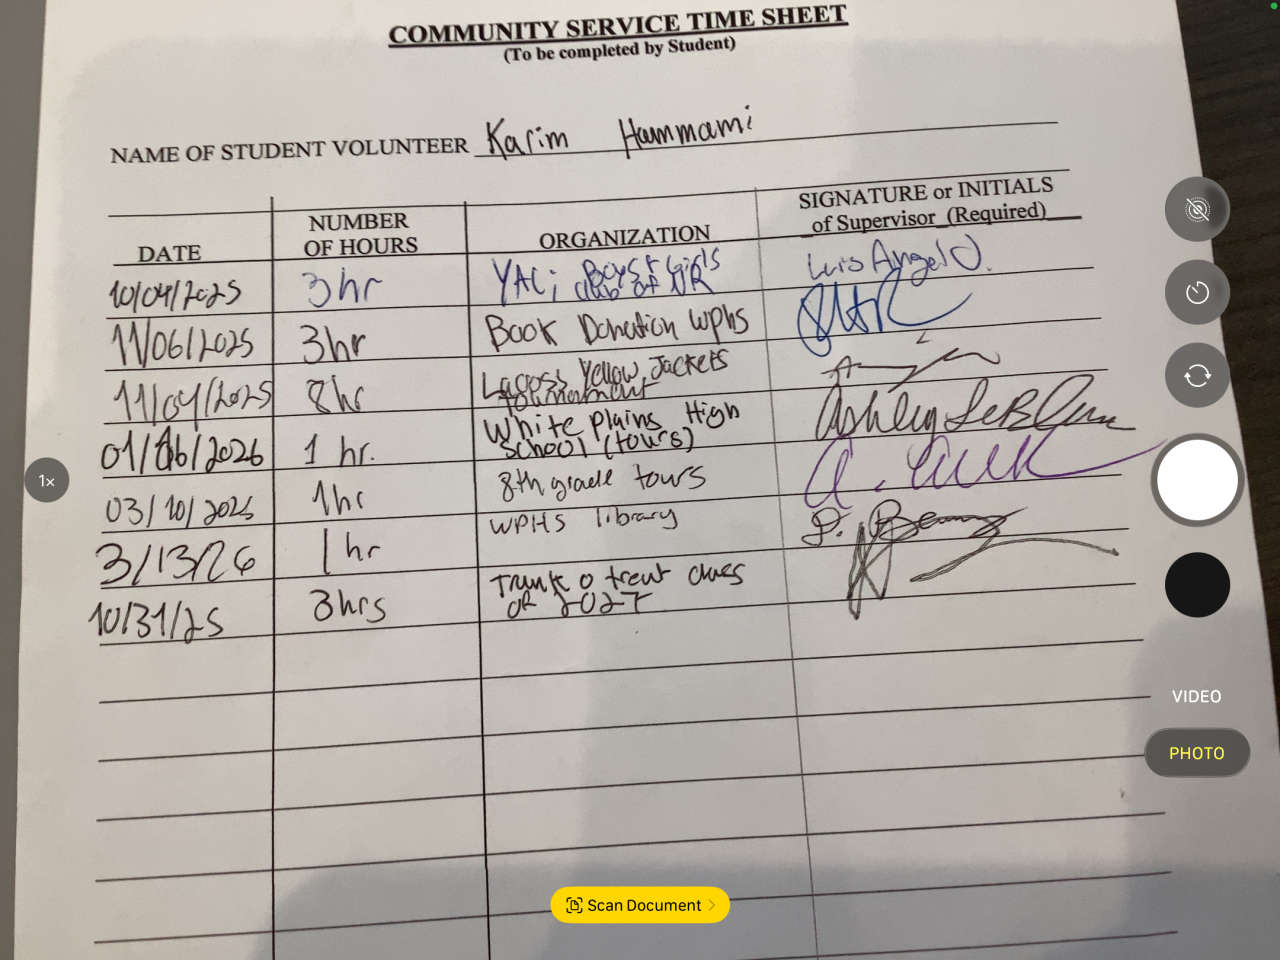 COMMUNITY SERVICE TIME SHEET
(To be completed by Student)
NAME OF STUDENT VOLUNTEER Karim Hammami
DATE NUMBER OF HOURS ORGANIZATION SIGNATURE or INITIALS of Supervisor (Required)
10/04/2025 3hr YAC; Boys & Girls club of NR Luis Angel O.
11/06/2025 3hr Book Donation WPHS
11/04/2025 8hr Yellow Jackets tournament
01/16/2026 1 hr. White Plains High School (tours) Ashley LeBlanc
03/10/2025 1hr 8th grade tours
3/13/26 1 hr WPHS library
10/31/25 3hrs Trunk o treat class OF 2027
1x
VIDEO
PHOTO
Scan Document